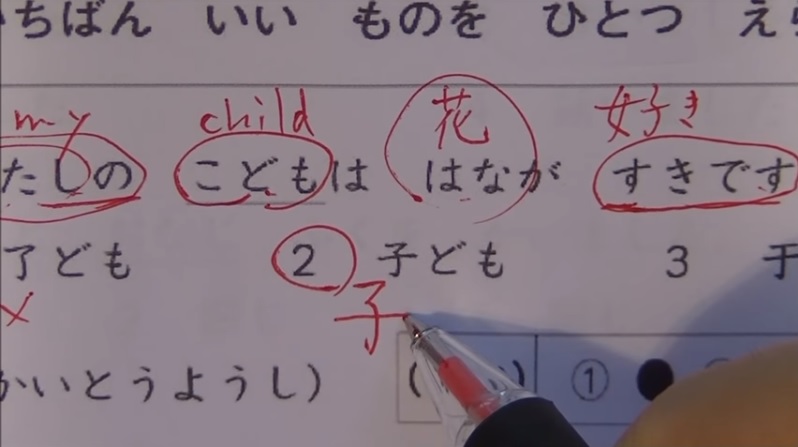 ちばん いい ものを ひとつ え
my child 花 好き
たしの こどもは はなが すきです
了ども 2 子ども 3 于
子
かいとうようし) ( ) ①